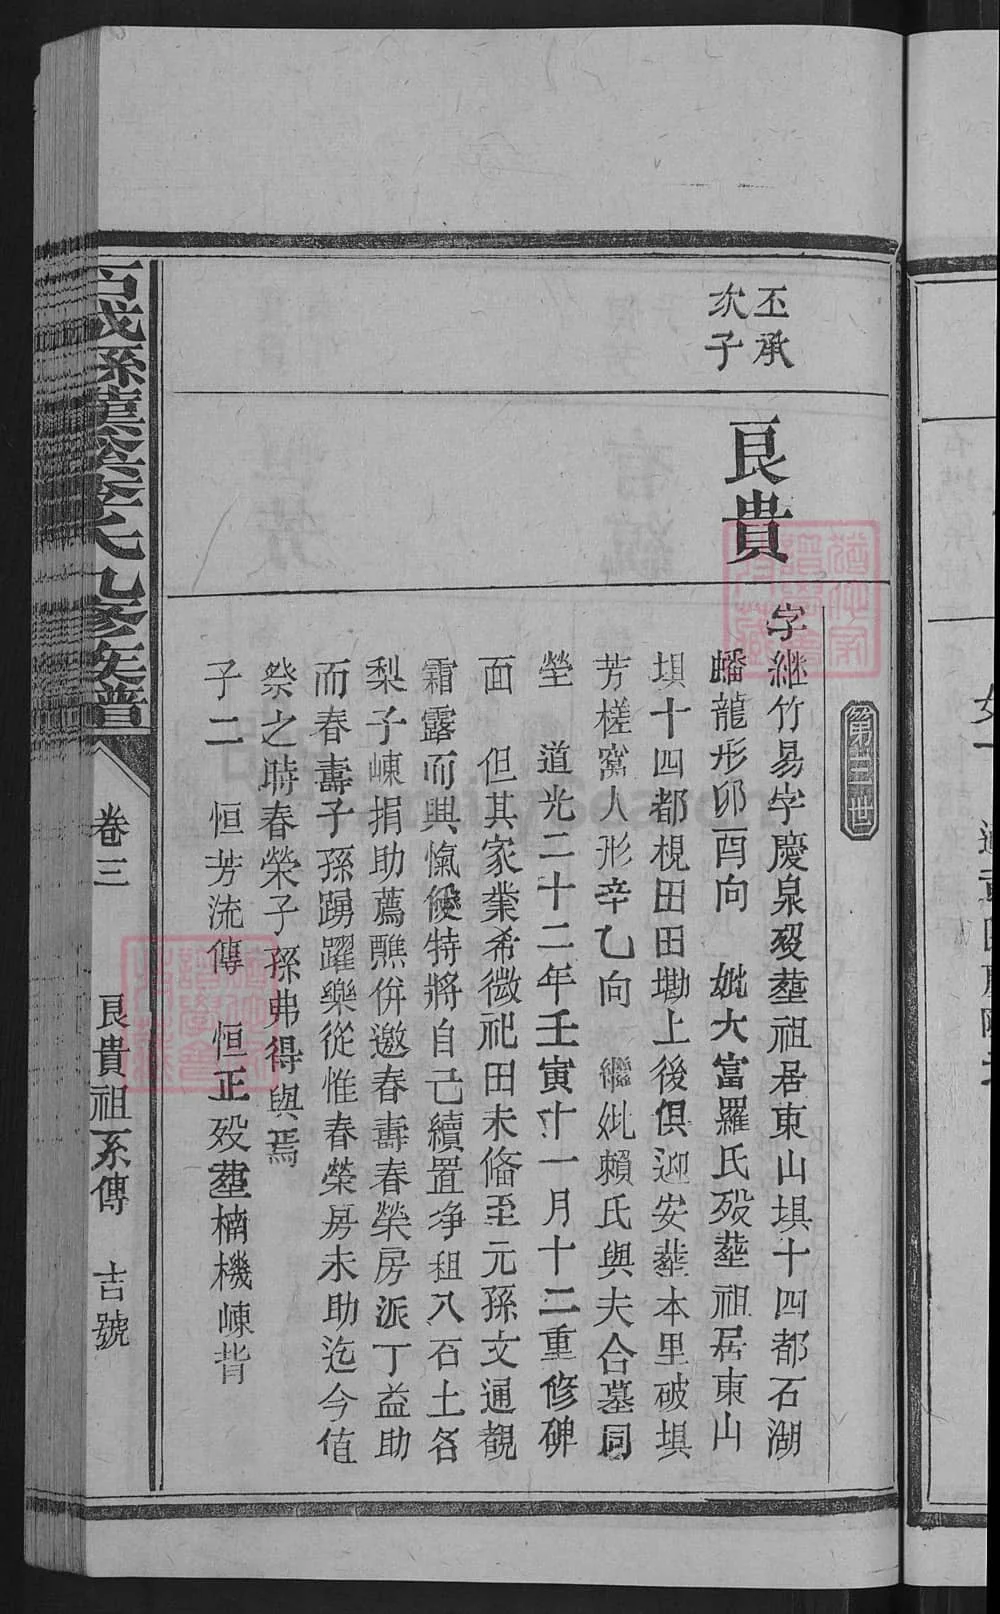 第三世
丕承
次子
艮貴
字繼竹易字慶泉歿塟祖居東山塤十四都石湖
蟠龍形卯酉向　妣大富羅氏歿塟祖居東山
塤十四都梘田田塝上後俱迎安塟本里破塤
芳槎窩人形辛乙向　繼妣賴氏與夫合墓同
塋　道光二十二年壬寅十一月十二重修碑
面　但其家業希微祀田未俻至元孫文通覩
霜露而興愾僾特將自己續置净租八石土各
梨子崠捐助薦醮併邀春壽春榮房派丁益助
而春壽子孫踴躍樂從惟春榮房未助迄今值
祭之時春榮子孫弗得與焉
子二　恒芳流傳　恒正歿塟楠機崠背
李氏九修族譜
卷三
艮貴祖系傳
吉號